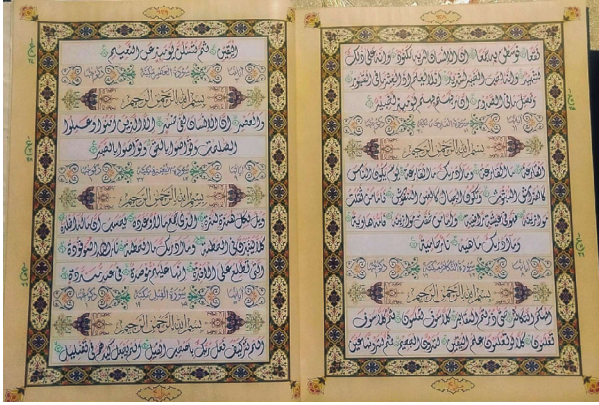 نقعا فوسطن به جمعا ان الانسان لربه لكنود وانه على ذلك
لشهيد وانه لحب الخير لشديد افلا يعلم اذا بعثر ما في القبور
وحصل ما في الصدور ان ربهم بهم يومئذ لخبير
سورة القارعة مكية
بسم الله الرحمن الرحيم
القارعة ما القارعة وما ادريك ما القارعة يوم يكون الناس
كالفراش المبثوث وتكون الجبال كالعهن المنفوش فاما من ثقلت
موازينه فهو في عيشة راضية واما من خفت موازينه فامه هاوية
وما ادريك ما هيه نار حامية
سورة التكاثر مكية
بسم الله الرحمن الرحيم
الهيكم التكاثر حتى زرتم المقابر كلا سوف تعلمون ثم كلا سوف
تعلمون كلا لو تعلمون علم اليقين لترون الجحيم ثم لترونها عين
اليقين ثم لتسئلن يومئذ عن النعيم
سورة العصر مكية
بسم الله الرحمن الرحيم
والعصر ان الانسان لفى خسر الا الذين امنوا وعملوا
الصلحت وتواصوا بالحق وتواصوا بالصبر
بسم الله الرحمن الرحيم
ويل لكل همزة لمزة الذي جمع مالا وعدده يحسب ان ماله اخلده
كلا لينبذن في الحطمة وما ادريك ما الحطمة نار الله الموقدة
التي تطلع على الافئدة انها عليهم مؤصدة في عمد ممددة
سورة الفيل مكية
بسم الله الرحمن الرحيم
الم تر كيف فعل ربك باصحب الفيل الم يجعل كيدهم في تضليل